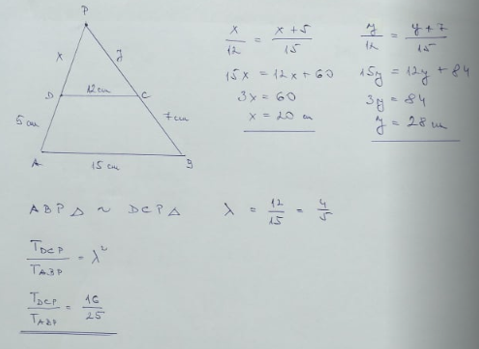 P
x
y
D
12cm
C
5cm
7cm
A
15cm
B
x/12 = x+5/15
15x = 12x + 60
3x = 60
x = 20 cm
y/12 = y+7/15
15y = 12y + 84
3y = 84
y = 28 cm
ABP△ ~ DCP△ λ = 12/15 = 4/5
T_DCP/T_ABP = λ²
T_DCP/T_ABP = 16/25